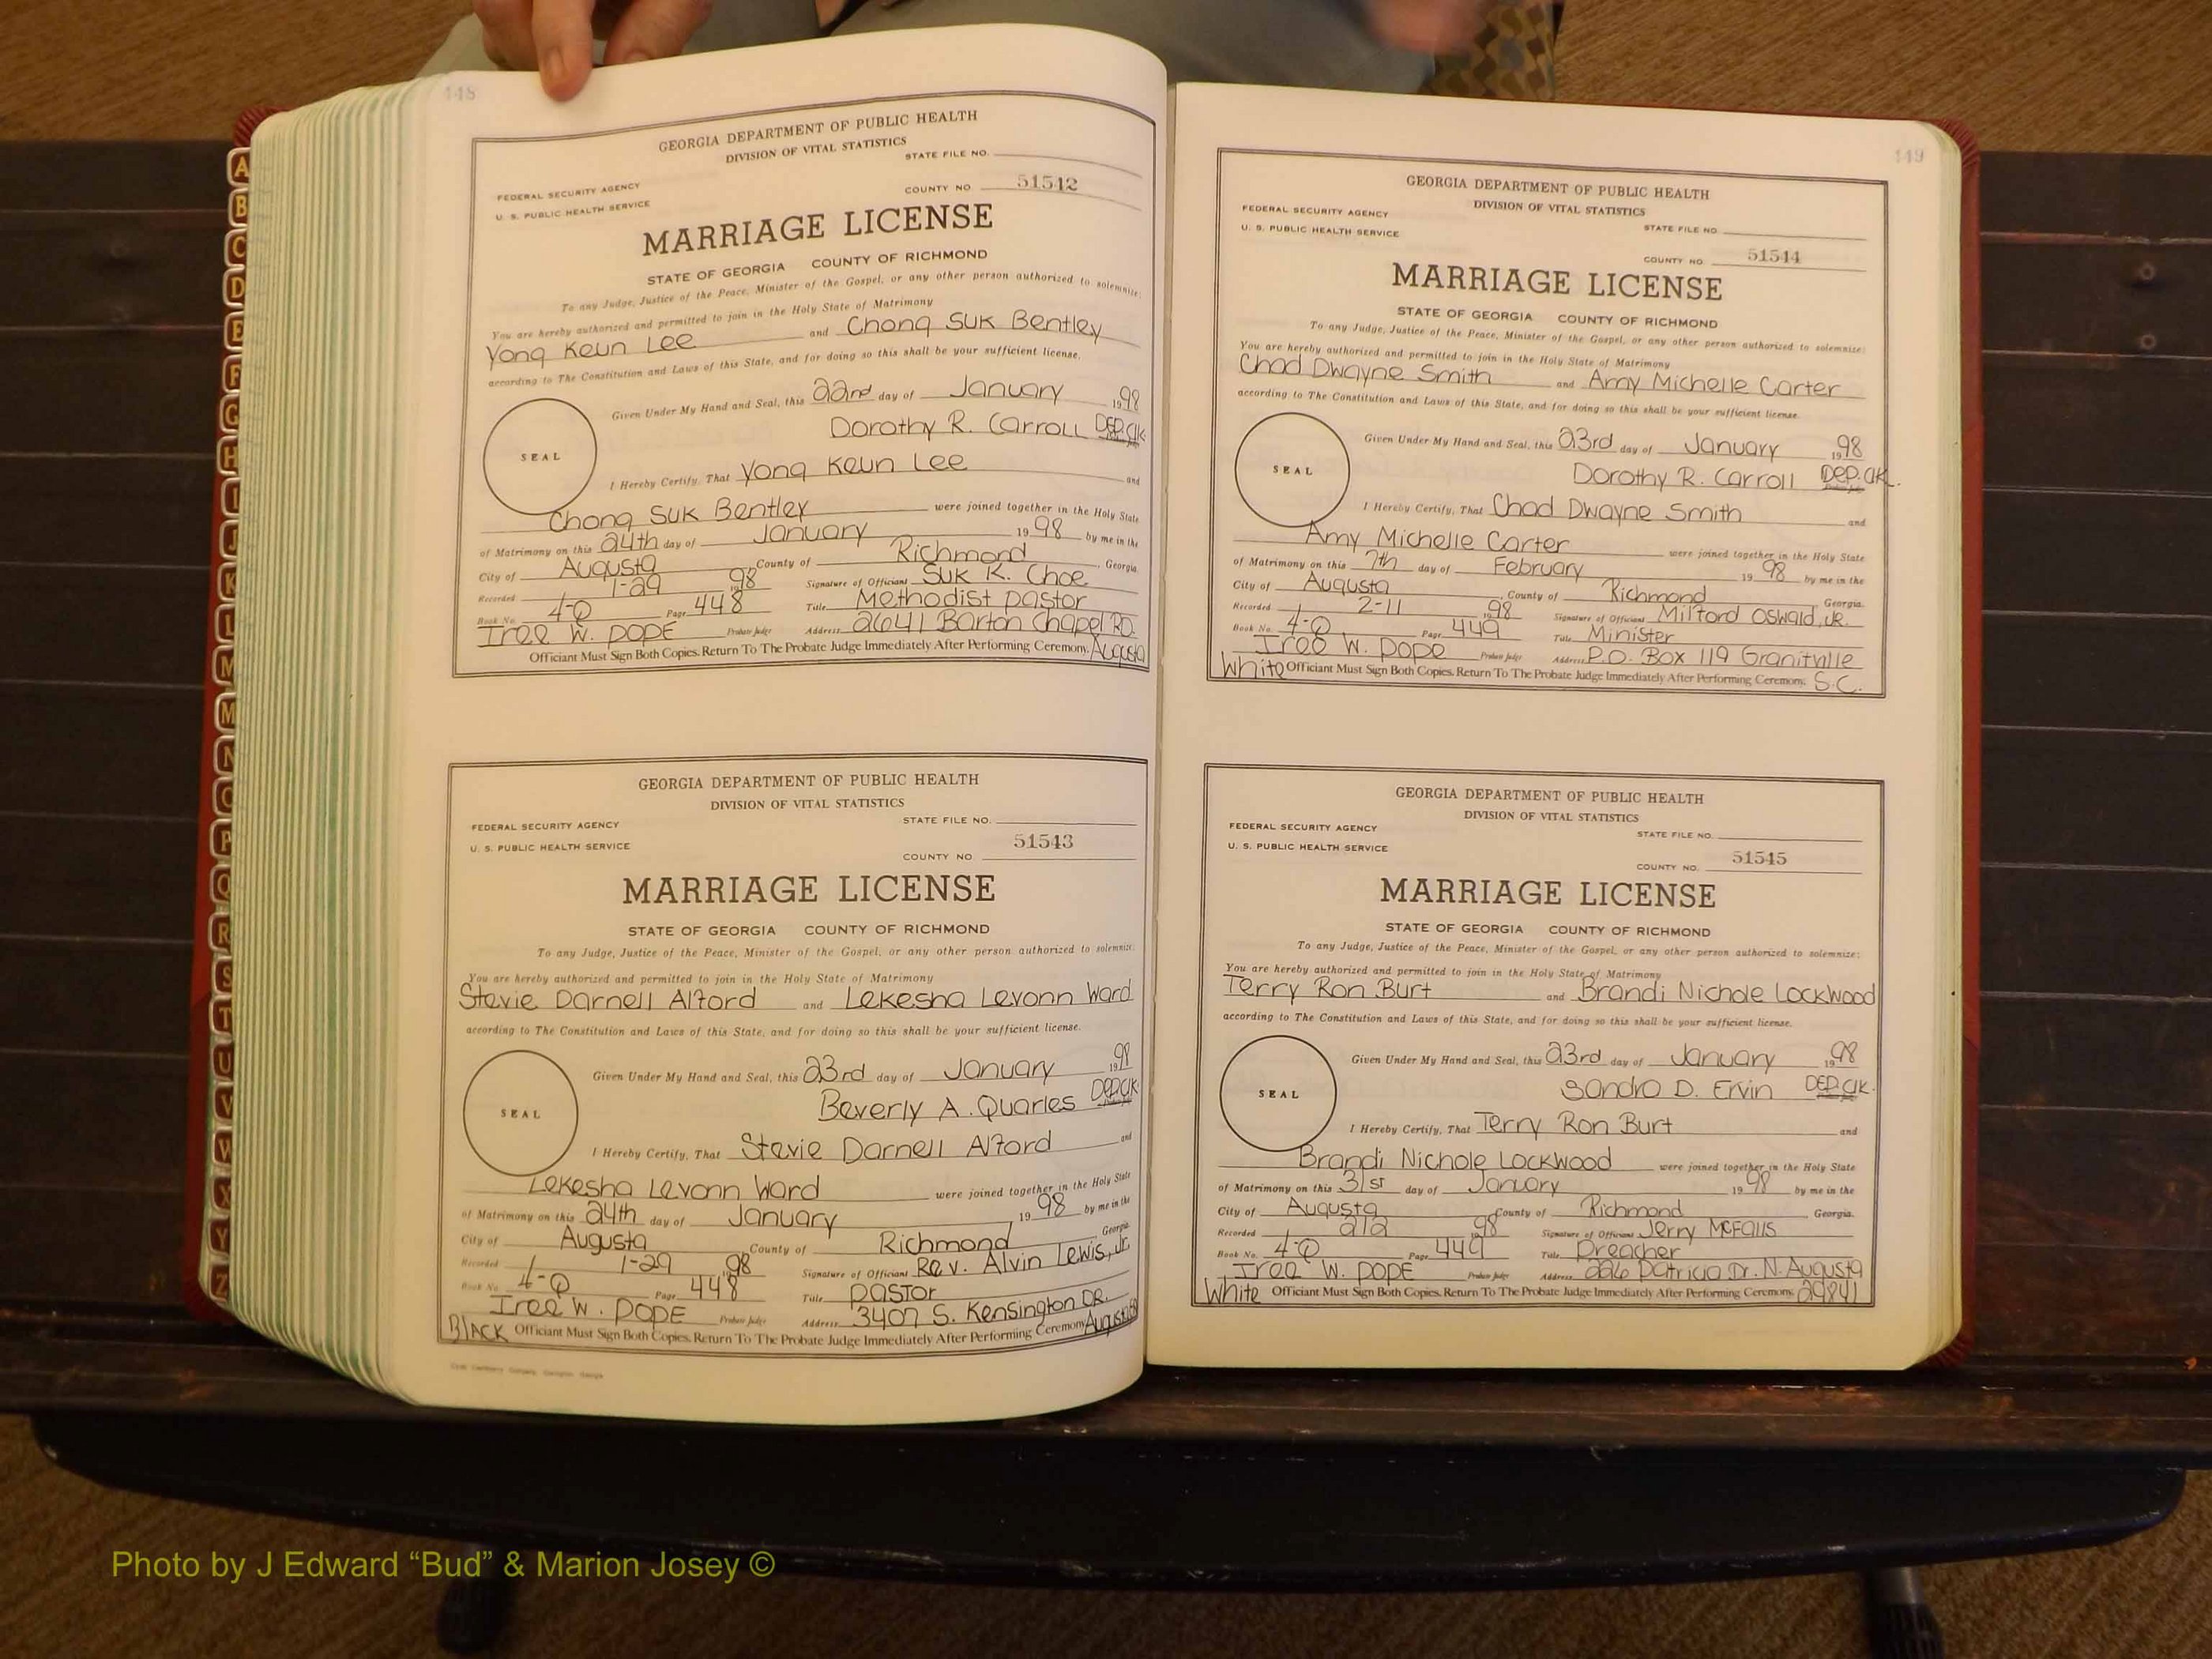 448
GEORGIA DEPARTMENT OF PUBLIC HEALTH
DIVISION OF VITAL STATISTICS
STATE FILE NO.
FEDERAL SECURITY AGENCY
COUNTY NO 51542
U. S. PUBLIC HEALTH SERVICE
MARRIAGE LICENSE
STATE OF GEORGIA COUNTY OF RICHMOND
To any Judge, Justice of the Peace, Minister of the Gospel, or any other person authorized to solemnize:
You are hereby authorized and permitted to join in the Holy State of Matrimony
Yong Keun Lee and Chong Suk Bentley
according to The Constitution and Laws of this State, and for doing so this shall be your sufficient license.
Given Under My Hand and Seal, this 22nd day of January 1998
Dorothy R. Carroll DEP. Clk
SEAL
I Hereby Certify, That Yong Keun Lee and
Chong Suk Bentley were joined together in the Holy State
of Matrimony on this 24th day of January 1998 by me in the
City of Augusta County of Richmond, Georgia.
Recorded 1-29 1998 Signature of Officiant Suk K. Choe
Book No. 4-Q Page 448 Title Methodist Pastor
Iree W. Pope Probate Judge Address 2641 Barton Chapel RD.
Officiant Must Sign Both Copies. Return To The Probate Judge Immediately After Performing Ceremony. Augusta
GEORGIA DEPARTMENT OF PUBLIC HEALTH
DIVISION OF VITAL STATISTICS
STATE FILE NO.
FEDERAL SECURITY AGENCY
51543
U. S. PUBLIC HEALTH SERVICE
COUNTY NO
MARRIAGE LICENSE
STATE OF GEORGIA COUNTY OF RICHMOND
To any Judge, Justice of the Peace, Minister of the Gospel, or any other person authorized to solemnize:
You are hereby authorized and permitted to join in the Holy State of Matrimony
Stevie Darnell Alford and Lekesha Levonn Ward
according to The Constitution and Laws of this State, and for doing so this shall be your sufficient license.
Given Under My Hand and Seal, this 23rd day of January 1998
Beverly A. Quarles DEP. Clk
SEAL
I Hereby Certify, That Stevie Darnell Alford and
Lekesha Levonn Ward were joined together in the Holy State
of Matrimony on this 24th day of January 1998 by me in the
City of Augusta County of Richmond Georgia.
Recorded 1-29 98 Signature of Officiant Rev. Alvin Lewis, Jr.
Book No. 4-Q Page 448 Title Pastor
Iree W. Pope Probate Judge Address 3407 S. Kensington DR.
BLACK Officiant Must Sign Both Copies. Return To The Probate Judge Immediately After Performing Ceremony. Augusta
449
GEORGIA DEPARTMENT OF PUBLIC HEALTH
DIVISION OF VITAL STATISTICS
FEDERAL SECURITY AGENCY
STATE FILE NO.
U. S. PUBLIC HEALTH SERVICE
COUNTY NO. 51544
MARRIAGE LICENSE
STATE OF GEORGIA COUNTY OF RICHMOND
To any Judge, Justice of the Peace, Minister of the Gospel, or any other person authorized to solemnize:
You are hereby authorized and permitted to join in the Holy State of Matrimony
Chad Dwayne Smith and Amy Michelle Carter
according to The Constitution and Laws of this State, and for doing so this shall be your sufficient license.
Given Under My Hand and Seal, this 23rd day of January 1998
Dorothy R. Carroll Dep. Clk.
SEAL
I Hereby Certify, That Chad Dwayne Smith and
Amy Michelle Carter were joined together in the Holy State
of Matrimony on this 7th day of February 1998 by me in the
City of Augusta, County of Richmond Georgia.
Recorded 2-11 1998 Signature of Officiant Milford Oswald, Jr.
Book No. 4-Q Page 449 Title Minister
Iree W. Pope Probate Judge Address P.O. Box 119 Graniteville
White Officiant Must Sign Both Copies. Return To The Probate Judge Immediately After Performing Ceremony. S.C.
GEORGIA DEPARTMENT OF PUBLIC HEALTH
DIVISION OF VITAL STATISTICS
FEDERAL SECURITY AGENCY
STATE FILE NO.
U. S. PUBLIC HEALTH SERVICE
COUNTY NO. 51545
MARRIAGE LICENSE
STATE OF GEORGIA COUNTY OF RICHMOND
To any Judge, Justice of the Peace, Minister of the Gospel, or any other person authorized to solemnize:
You are hereby authorized and permitted to join in the Holy State of Matrimony
Terry Ron Burt and Brandi Nichole Lockwood
according to The Constitution and Laws of this State, and for doing so this shall be your sufficient license.
Given Under My Hand and Seal, this 23rd day of January 1998
Sandra D. Ervin DEP. Clk.
SEAL
I Hereby Certify, That Terry Ron Burt and
Brandi Nichole Lockwood were joined together in the Holy State
of Matrimony on this 31st day of January 1998 by me in the
City of Augusta County of Richmond Georgia.
Recorded 2/2 1998 Signature of Officiant Jerry McFalls
Book No. 4-Q Page 449 Title Preacher
Iree W. Pope Probate Judge Address 226 Patricia Dr. N. Augusta
White Officiant Must Sign Both Copies. Return To The Probate Judge Immediately After Performing Ceremony. 29841
A
B
C
D
E
F
G
H
I
J
K
L
M
M
N
O
P
Q
R
S
T
U
V
W
X
Y
Z
Photo by J Edward “Bud” & Marion Josey ©